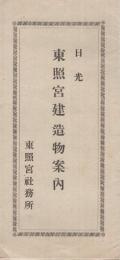 日光
東照宮建造物案內
東照宮社務所